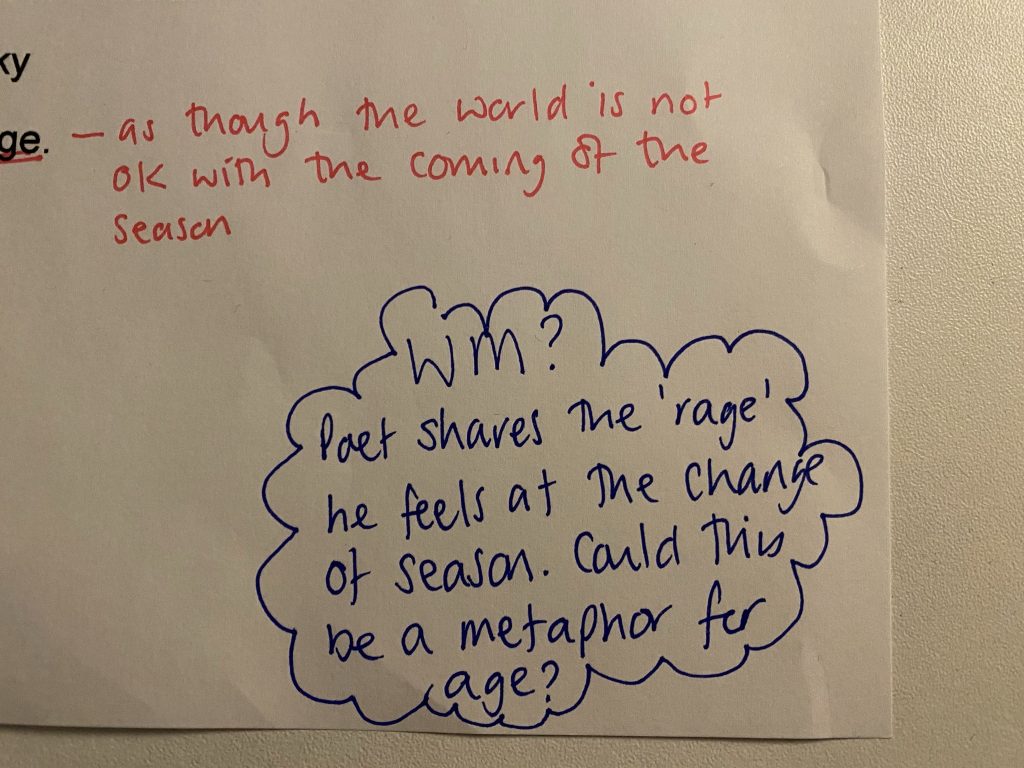 ky
ge. – as though the world is not
ok with the coming of the
season
WM?
Poet shares the 'rage'
he feels at the change
of season. Could this
be a metaphor for
age?